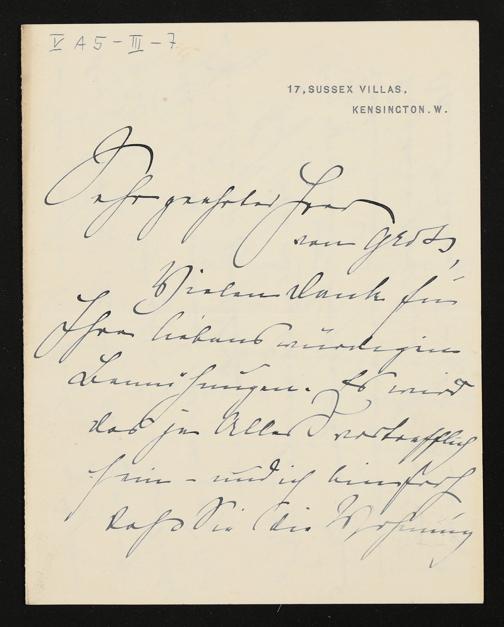 V A 5 - III - 7
17, SUSSEX VILLAS,
KENSINGTON. W.
Sehr geehrter Herr
von
Vielen Dank für
Ihre liebenswürdigen
Bemühungen. Es wird
das ja Alles vortrefflich
sein - und ich bin froh
daß Sie die Wohnung